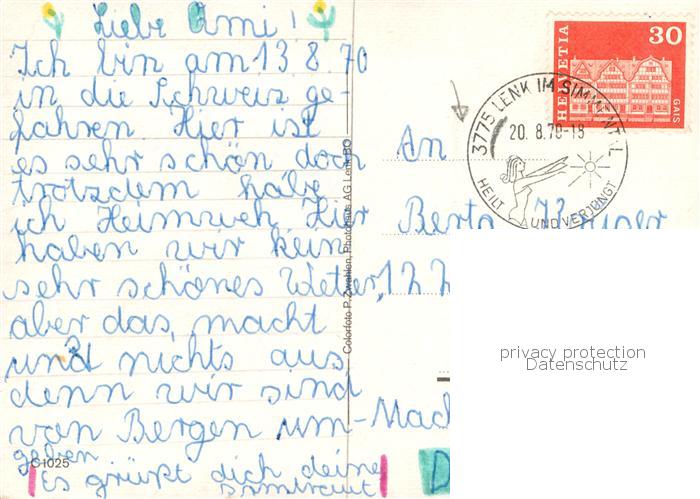 Liebe Ami!
Ich bin am 13 8. 70
in die Schweiz ge-
fahren. Hier ist
es sehr schön doch
trotzdem habe
ich Heimweh Hier
haben wir kein
sehr schönes Wetter,
aber das macht
und nichts aus
denn wir sind
von Bergen um-
geben
Es grüßt dich deine
C 1025
Colorfoto P. Zwahlen, Photohaus AG Lenk BO
HELVETIA
30
GAIS
3775 LENK IM SIMMENTAL
20. 8.70-18
HEILT UND VERJÜNGT
An
Berta
privacy protection
Datenschutz